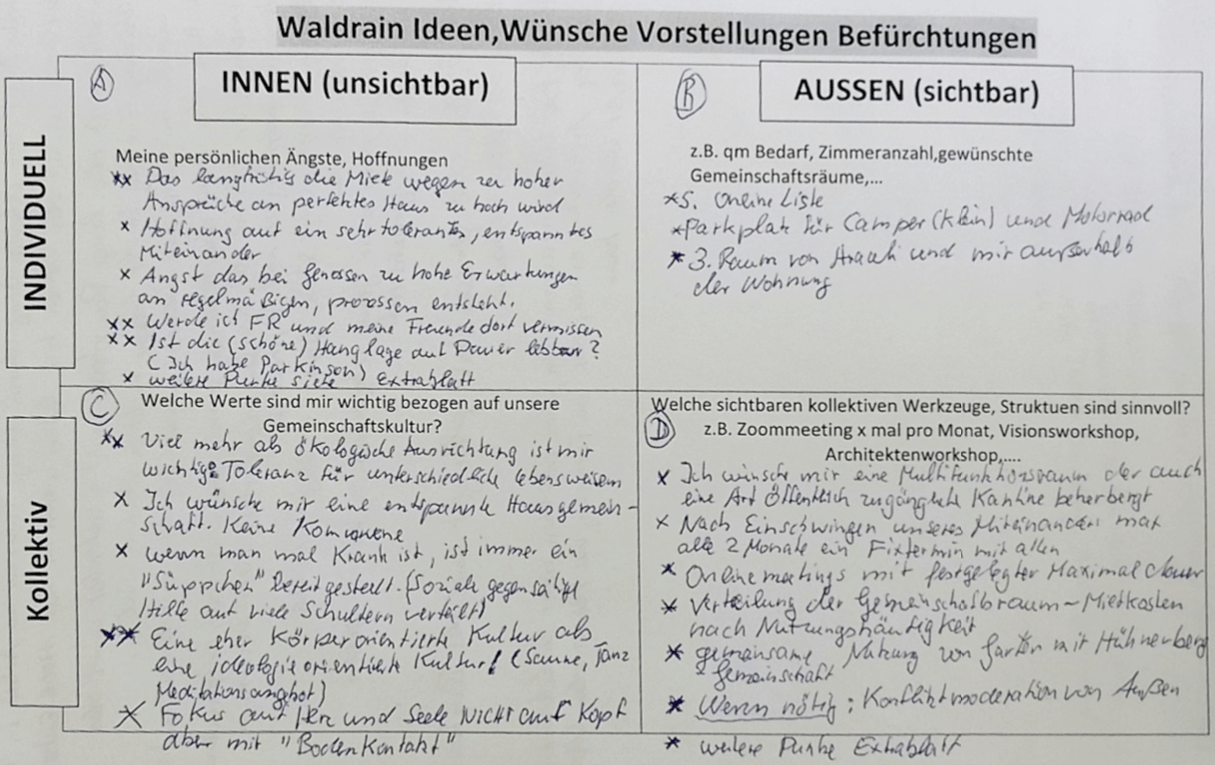 Waldrain Ideen,Wünsche Vorstellungen Befürchtungen
INNEN (unsichtbar)
AUSSEN (sichtbar)
INDIVIDUELL
A
Meine persönlichen Ängste, Hoffnungen
** Das langfristig die Miete wegen zu hoher
Ansprüche an perfektes Haus zu hoch wird
* Hoffnung auf ein sehr tolerantes, entspanntes
Miteinander
* Angst das bei Genossen zu hohe Erwartungen
an regelmäßigen, prozessen entsteht.
** Werde ich FR und meine Freunde dort vermissen
** Ist die (schöne) Hanglage auf Dauer lebbar?
(Ich habe Parkinson)
* weitere Punkte siehe Extrablatt
B
z.B. qm Bedarf, Zimmeranzahl,gewünschte
Gemeinschaftsräume,...
* S. Online Liste
* Parkplatz für Camper (klein) und Motorrad
* 3. Raum von und mir außerhalb
der Wohnung
Kollektiv
C
Welche Werte sind mir wichtig bezogen auf unsere
Gemeinschaftskultur?
** Viel mehr als ökologische Ausrichtung ist mir
wichtig: Toleranz für unterschiedliche Lebensweisen
* Ich wünsche mir eine entspannte Hausgemein-
schaft. Keine Kommune
* wenn man mal Krank ist, ist immer ein
"Süppchen" bereitgestellt. (Soziale gegenseitige
Hilfe auf viele Schultern verteilt)
** Eine eher Körperorientierte Kultur als
eine ideologie orientierte Kultur! (Sauna, Tanz
Meditationsangebot)
* Fokus auf Herz und Seele NICHT auf Kopf
aber mit "Bodenkontakt"
D
Welche sichtbaren kollektiven Werkzeuge, Struktuen sind sinnvoll?
z.B. Zoommeeting x mal pro Monat, Visionsworkshop,
Architektenworkshop,....
* Ich wünsche mir eine Multifunktionsraum der auch
eine Art Öffentlich zugängliche Kantine beherbergt
* Nach Einschwingen unseres Miteinanders max
alle 2 Monate ein Fixtermin mit allen
* Onlinemeetings mit festgelegter Maximaldauer
* Verteilung der Gemeinschaftsraum-Mietkosten
nach Nutzungshäufigkeit
* gemeinsame Nutzung von Garten mit Hühnerberg
gemeinschaft
* Wenn nötig: Konfliktmoderation von Außen
* weitere Punkte Extrablatt